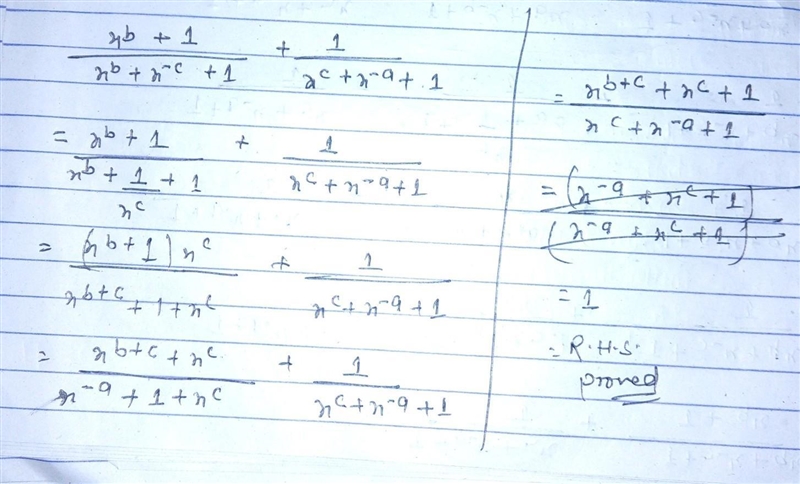 (x^b + 1)/(x^b + x^-c + 1) + 1/(x^c + x^-a + 1)
= (x^b + 1)/(x^b + 1/x^c + 1) + 1/(x^c + x^-a + 1)
= ((x^b + 1) x^c)/(x^b+c + 1 + x^c) + 1/(x^c + x^-a + 1)
= (x^b+c + x^c)/(x^-a + 1 + x^c) + 1/(x^c + x^-a + 1)
= (x^b+c + x^c + 1)/(x^c + x^-a + 1)
= (x^-a + x^c + 1)/(x^-a + x^c + 1)
= 1
= R.H.S.
proved